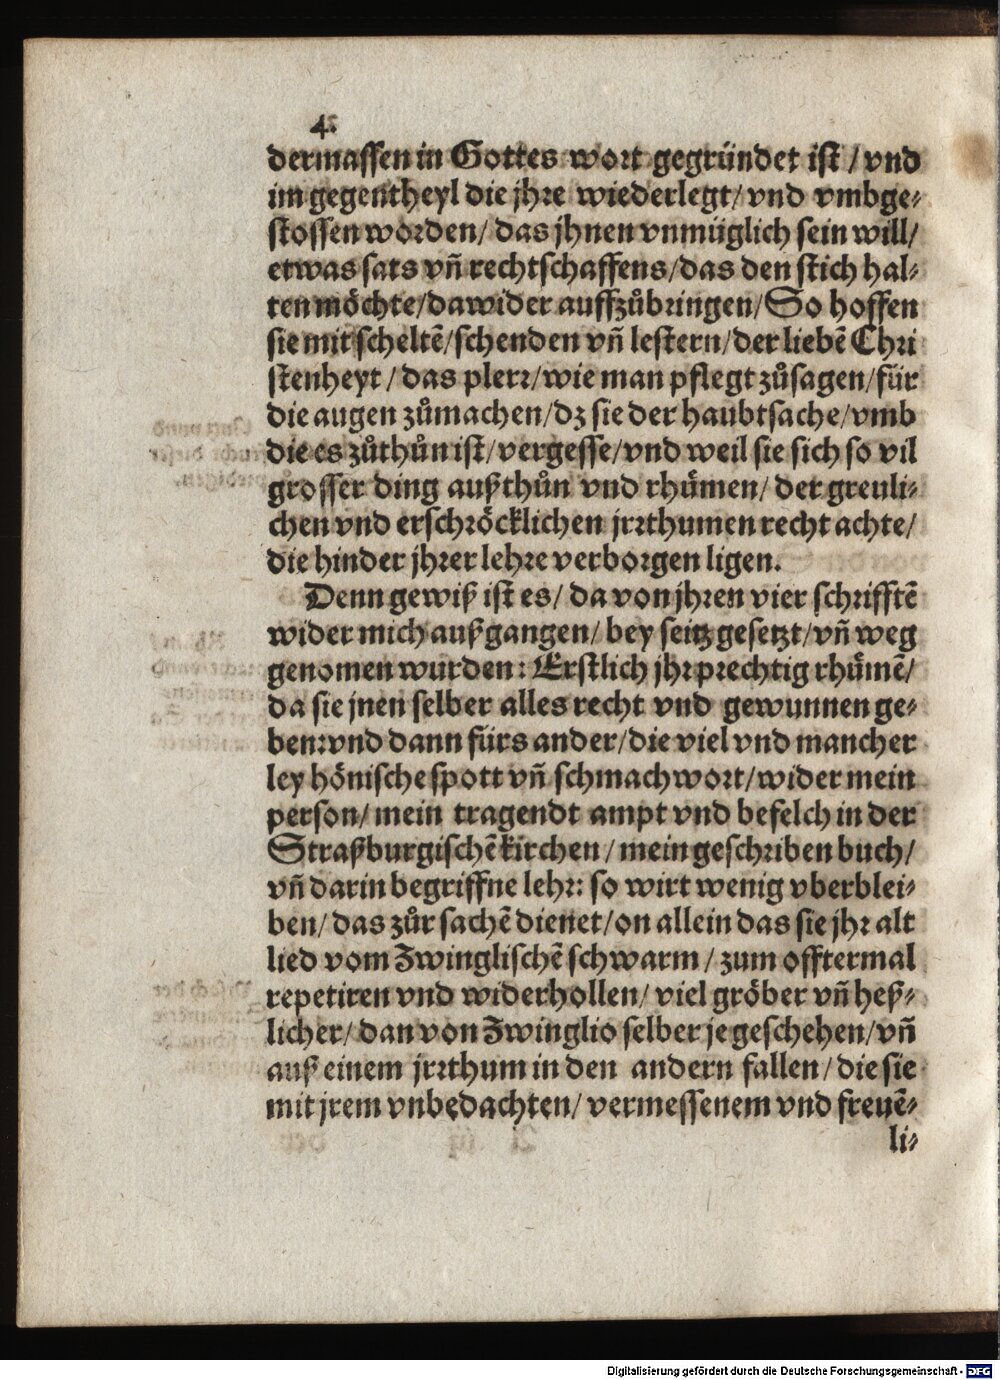 4.
dermassen in Gottes wort gegründet ist / vnd
im gegentheyl die jhre wiederlegt/ vnd vmbge⸗
stossen worden/ das jhnen vnmüglich sein will/
etwas sats vñ rechtschaffens/das den stich hal⸗
ten möchte/dawider auffzůbringen/So hoffen
sie mit scheltẽ/schenden vñ lestern/der liebẽ Chri
stenheyt / das plerr/wie man pflegt zůsagen/für
die augen zůmachen/dz sie der haubtsache/vmb
die es zůthůn ist/vergesse/vnd weil sie sich so vil
grosser ding außthůn vnd rhümen/ der greuli⸗
chen vnd erschröcklichen jrrthumen recht achte/
die hinder jhrer lehre verborgen ligen.
Denn gewiß ist es/ da von jhren vier schrifftẽ
wider mich außgangen/ bey seitz gesetzt/vñ weg
genomen wurden: Erstlich jhr prechtig rhümẽ/
da sie jnen selber alles recht vnd gewunnen ge⸗
ben:vnd dann fürs ander/die viel vnd mancher
ley hönische spott vñ schmachwort/wider mein
person/ mein tragendt ampt vnd befelch in der
Straßburgischẽ kirchen / mein geschriben buch/
vñ darin begriffne lehr: so wirt wenig vberblei⸗
ben/ das zůr sachẽ dienet/on allein das sie jhr alt
lied vom Zwinglischẽ schwarm / zum offtermal
repetiren vnd widerhollen/ viel gröber vñ heß⸗
licher/ dan von Zwinglio selber je geschehen/vñ
auß einem jrrthum in den andern fallen/die sie
mit jrem vnbedachten/ vermessenem vnd freuẽ⸗
li⸗
Digitalisierung gefördert durch die Deutsche Forschungsgemeinschaft - DFG